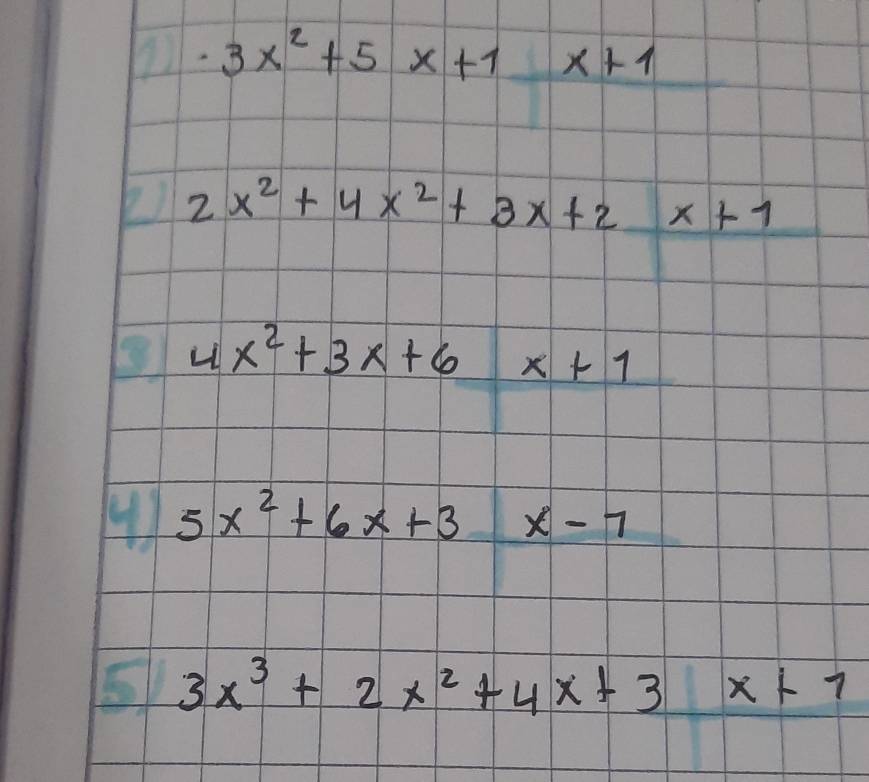 1) · 3x² + 5 x + 1 | x + 1
2) 2x² + 4x² + 3x + 2 | x + 1
3) 4x² + 3x + 6 | x + 1
4) 5x² + 6x + 3 | x - 1
5) 3x³ + 2x² + 4x + 3 | x + 1